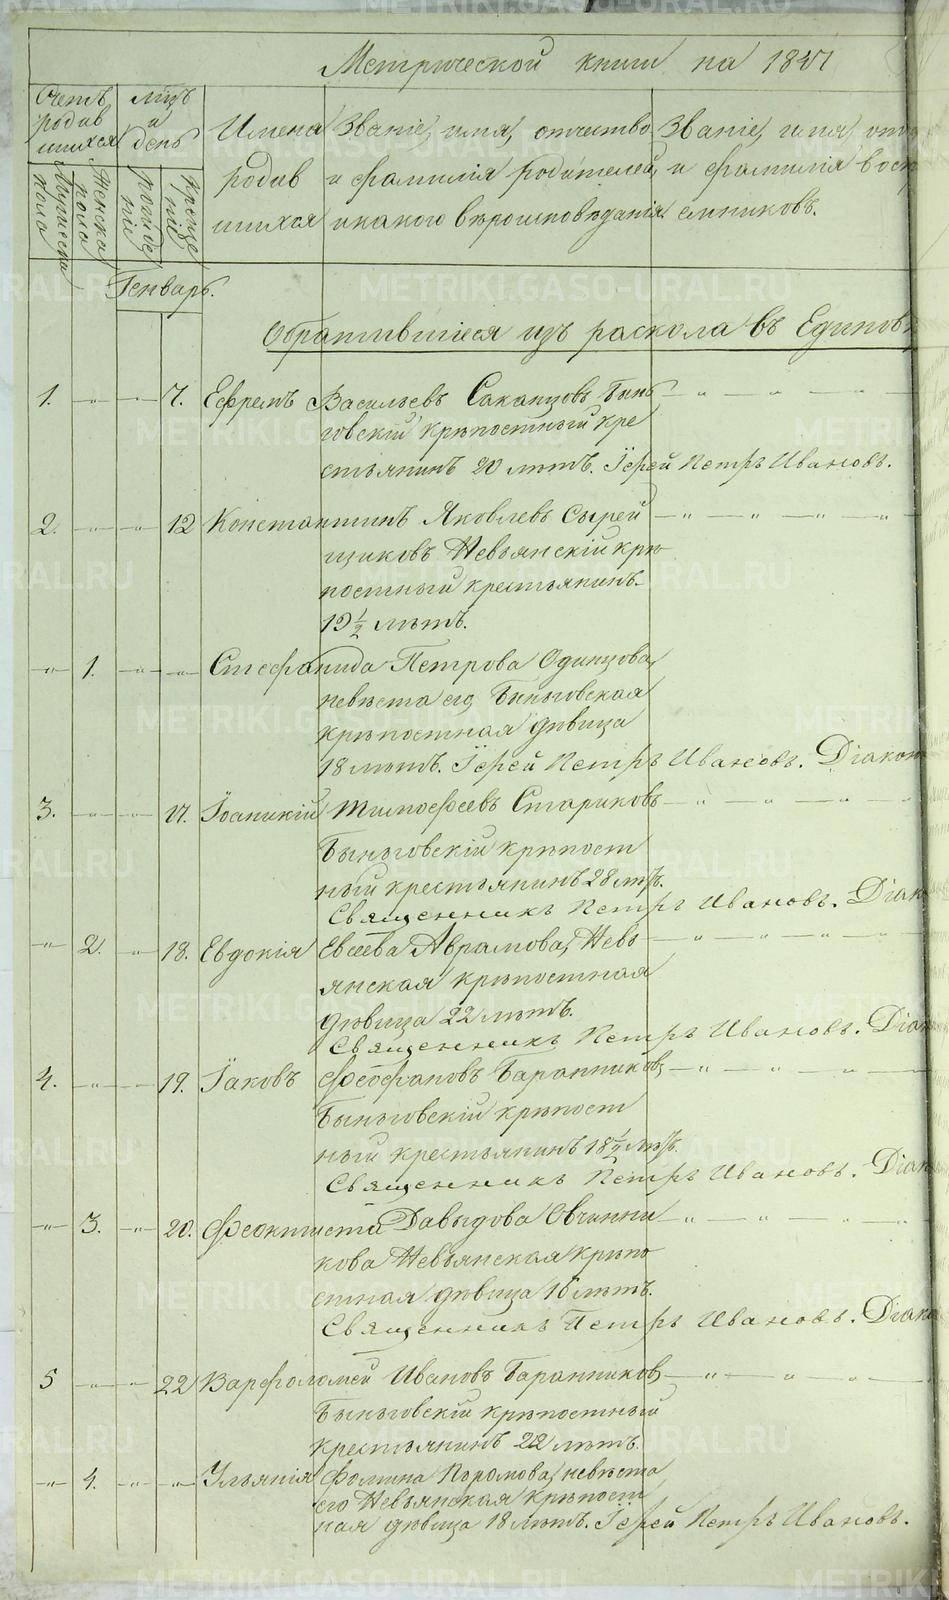 Метрической книги на 1847
Счетъ родив шихся
Мѣцъ и день
Имена родив шихся
Званіе, имя, отчество и фамилія родителей, и какого вѣроисповѣданія
Званіе, имя, отч
и фамилія восп
емниковъ.
Мужеска пола
Женска пола
рожде нія
креще нія
Генварь.
Обратившіеся изъ раскола въ Единов
1. 7. Ефремъ Васильевъ Саканцовъ Бынь
говскій крѣпостный кре
стьянинъ 20 лѣтъ. Іерей Петръ Ивановъ.
2. 12 Константинъ Яковлевъ Сырей
щиковъ Невьянскій крѣ
постный крестьянинъ.
19 1/2 лѣтъ.
1. Стефанида Петрова Одинцова,
невѣста его Быньговская
крѣпостная дѣвица
18 лѣтъ. Іерей Петръ Ивановъ. Діакон
3. 17. Іоаникій Тимофеевъ Стариковъ
Быньговскій крѣпост
ный крестьянинъ 28 лѣтъ.
Священникъ Петръ Ивановъ. Діак
2. 18. Евдокія Евсѣева Аврамова, Невь
янская крѣпостная
дѣвица 22 лѣтъ.
Священникъ Петръ Ивановъ. Діак
4. 19. Іаковъ Феофановъ Баранниковъ,
Быньговскій крѣпост
ный крестьянинъ 18 1/2 лѣтъ.
Священникъ Петръ Ивановъ. Діак
3. 20. Феоктиста Давыдова Овчинни
кова Невьянская крѣпо
стная дѣвица 16 лѣтъ.
Священникъ Петръ Ивановъ. Діако
5 22 Варфоломей Ивановъ Баранниковъ,
Быньговскій крѣпостный
крестьянинъ 22 лѣтъ.
4. Ульянія Фомина невѣста
его Невьянская крѣпост
ная дѣвица 18 лѣтъ. Іерей Петръ Ивановъ.
METRIKI.GASO-URAL.RU